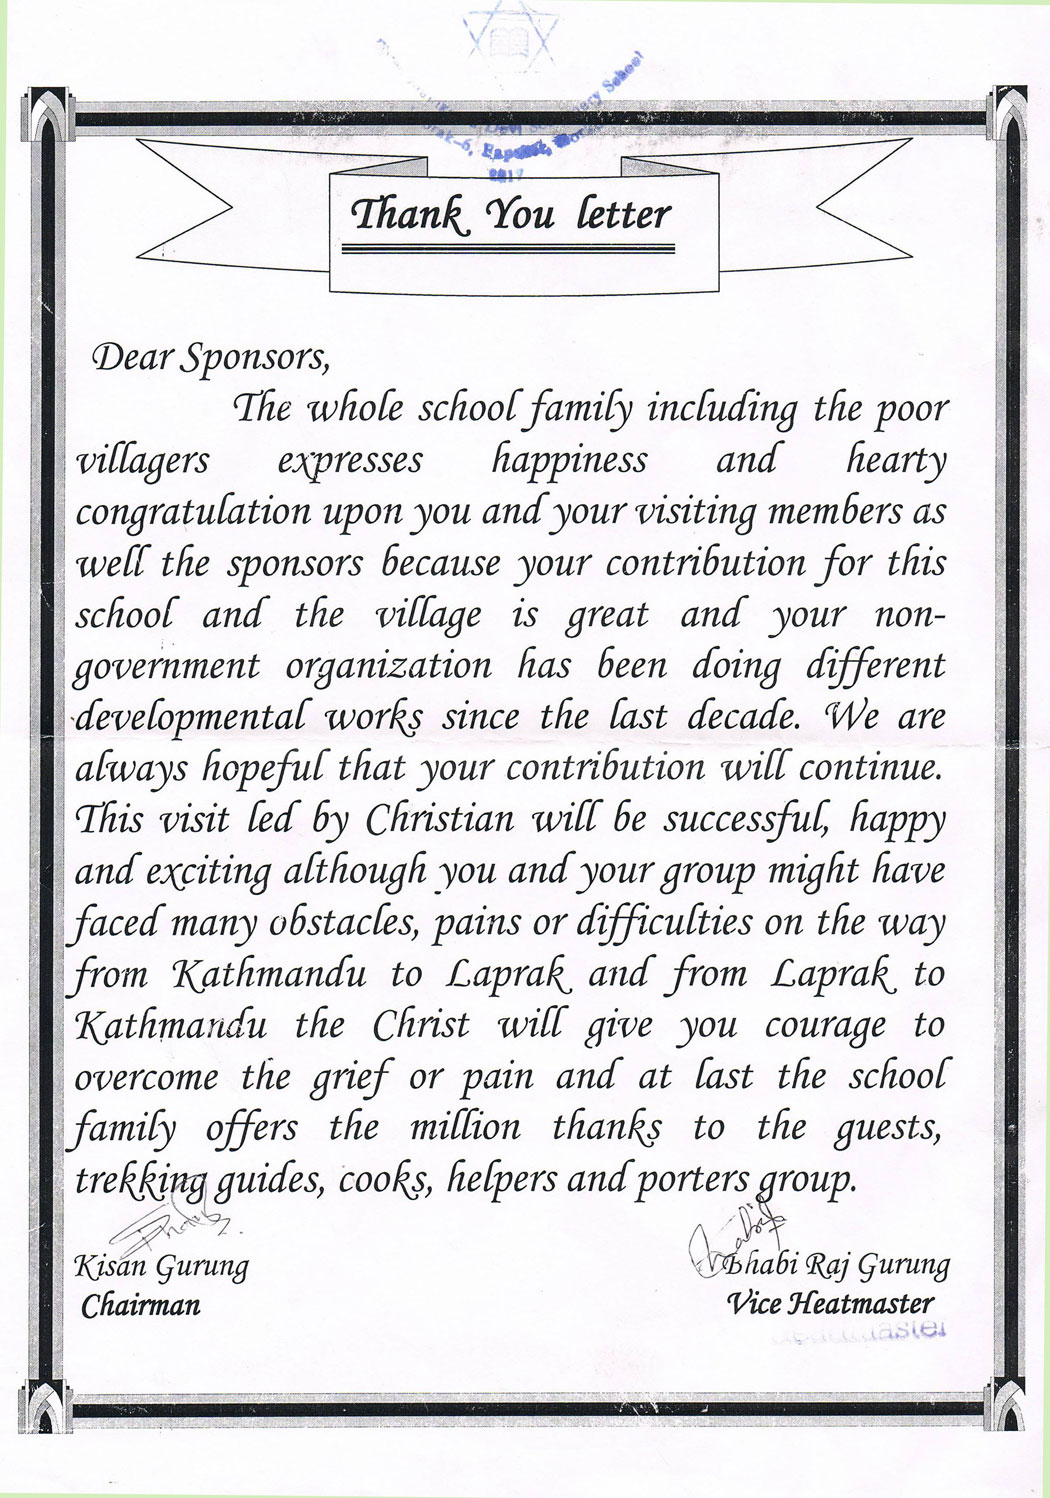 School
-6,
2017
Thank You letter
Dear Sponsors,
The whole school family including the poor
villagers expresses happiness and hearty
congratulation upon you and your visiting members as
well the sponsors because your contribution for this
school and the village is great and your non-
government organization has been doing different
developmental works since the last decade. We are
always hopeful that your contribution will continue.
This visit led by Christian will be successful, happy
and exciting although you and your group might have
faced many obstacles, pains or difficulties on the way
from Kathmandu to Laprak and from Laprak to
Kathmandu the Christ will give you courage to
overcome the grief or pain and at last the school
family offers the million thanks to the guests,
trekking guides, cooks, helpers and porters group.
Kisan Gurung
Chairman
Bhabi Raj Gurung
Vice Heatmaster